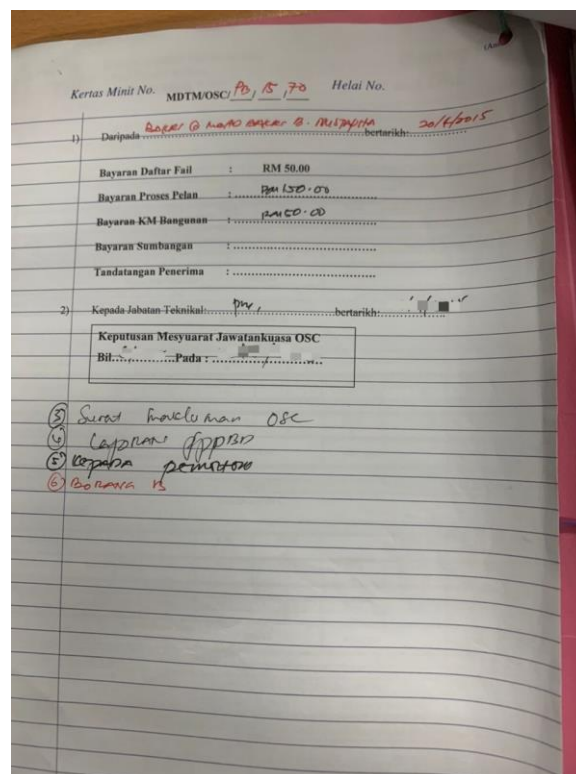 Kertas Minit No. MDTM/OSC/ PB, 15, 70 Helai No.
1) Daripada Bakri @ Mohd Bakri B. bertarikh: 20/4/2015
Bayaran Daftar Fail : RM 50.00
Bayaran Proses Pelan : RM 150.00
Bayaran KM Bangunan :
Bayaran Sumbangan :
Tandatangan Penerima :
2) Kepada Jabatan Teknikal: bertarikh:
Keputusan Mesyuarat Jawatankuasa OSC
Bil. Pada :
③ Surat makluman OSC
④ Laporan JPPBD
⑤ Kepada pemohon
⑥ BORANG B